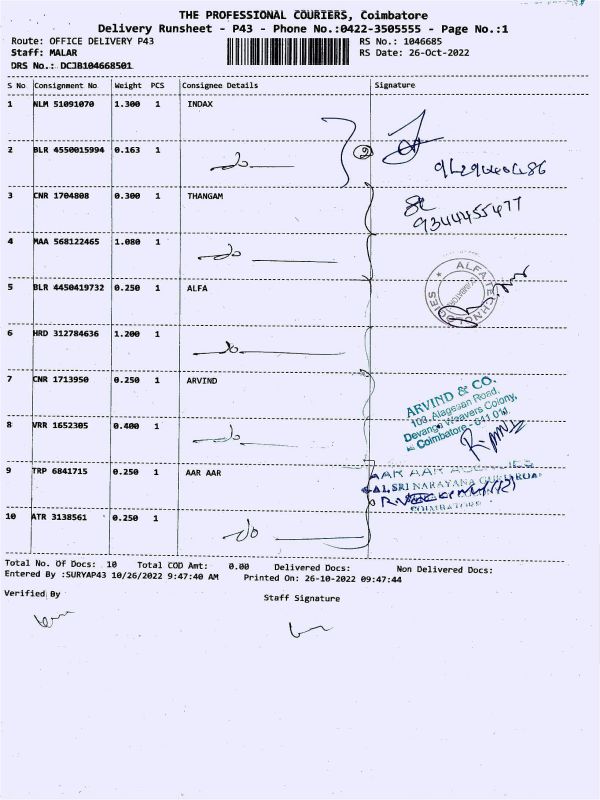 THE PROFESSIONAL COURIERS, Coimbatore
Delivery Runsheet - P43 - Phone No.:0422-3505555 - Page No.:1
Route: OFFICE DELIVERY P43 RS No.: 1046685
Staff: MALAR RS Date: 26-Oct-2022
DRS No.: DCJB104668501
S No Consignment No Weight PCS Consignee Details Signature
1 NLM 51091070 1.300 1 INDAX
2 BLR 4550015994 0.163 1 do
3 CNR 1704808 0.300 1 THANGAM
9344455477
4 MAA 568122465 1.080 1 do
5 BLR 4450419732 0.250 1 ALFA
ALFA TECHNOLOGIES
6 HRD 312784636 1.200 1 do
7 CNR 1713950 0.250 1 ARVIND
ARVIND & CO.
103, Alagesan Road,
Devanga Weavers Colony,
Coimbatore - 641 011
8 VRR 1652305 0.400 1 do
9 TRP 6841715 0.250 1 AAR AAR
AAR AAR
SRI NARAYANA GURU ROA
COIMBATORE
10 ATR 3138561 0.250 1 do
Total No. Of Docs: 10 Total COD Amt: 0.00 Delivered Docs: Non Delivered Docs:
Entered By :SURYAP43 10/26/2022 9:47:40 AM Printed On: 26-10-2022 09:47:44
Verified By Staff Signature